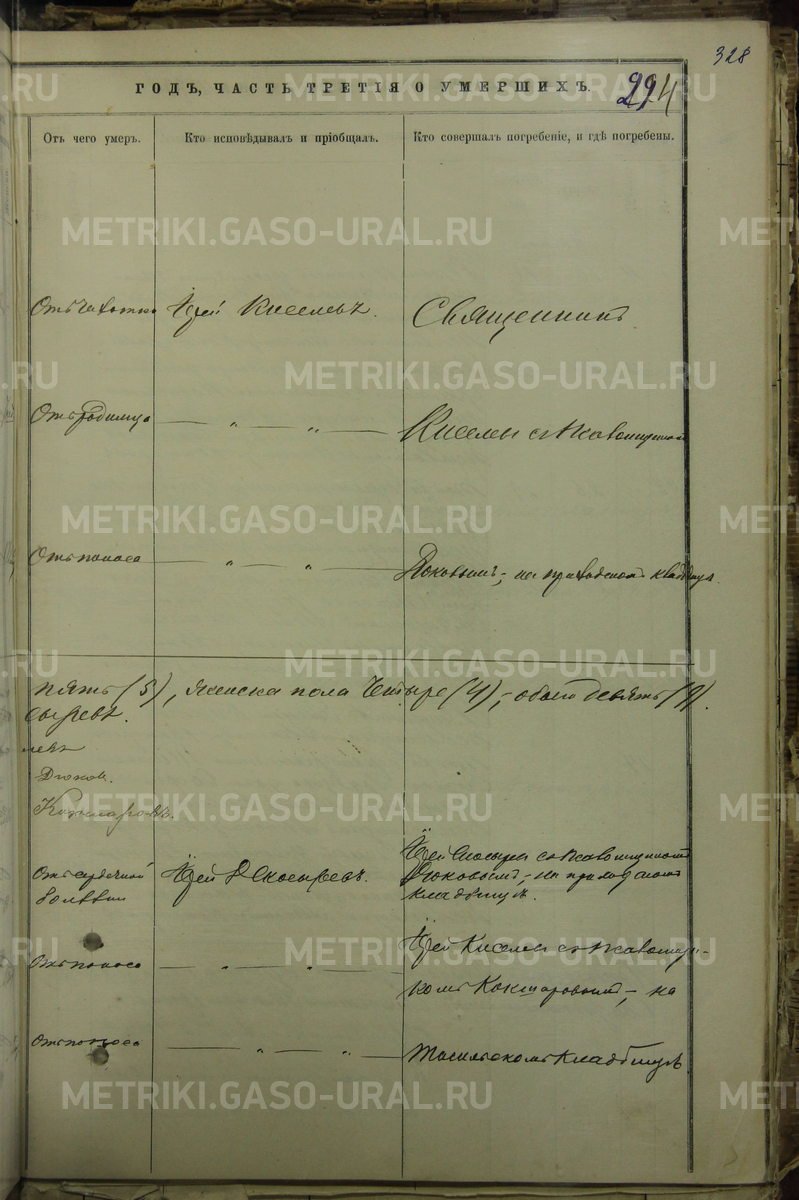 328
ГОДЪ, ЧАСТЬ ТРЕТІЯ О УМЕРШИХЪ.
294
Отъ чего умеръ.
Кто исповѣдывалъ и пріобщалъ.
Кто совершалъ погребеніе, и гдѣ погребены.
METRIKI.GASO-URAL.RU
Отъ чахотки
Іерей Киселевъ.
Священникъ
Отъ родимца
— „ — „ —
Киселев съ псаломщиком
Отъ поноса
— „ — „ —
Дюковымъ, на приходском кладбищѣ
пять (5), женска пола четыре (4), – обоего девять (9).
Дюков.
Отъ сердечной
болѣзни
Іерей
Іерей съ псаломщикомъ
Дюковымъ, – на приходском
кладбищѣ.
Отъ поноса
— „ — „ —
Іерей Киселев съ псаломщи-
комъ Кокшаровым, – на
Отъ поноса
— „ — „ —
кладбищѣ